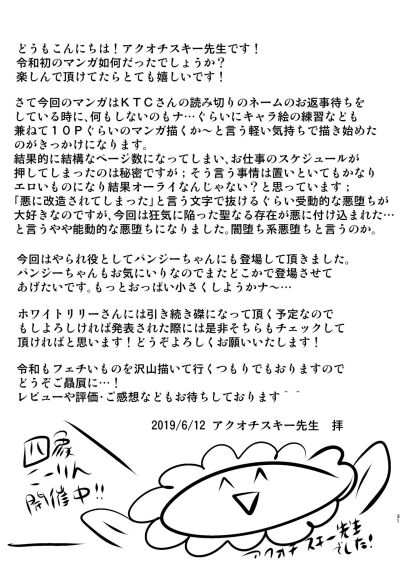 どうもこんにちは！アクオチスキー先生です！
令和初のマンガ如何だったでしょうか？
楽しんで頂けてたらとても嬉しいです！
さて今回のマンガはＫＴＣさんの読み切りのネームのお返事待ちを
している時に、何もしないのもナ…ぐらいにキャラ絵の練習なども
兼ねて１０Ｐぐらいのマンガ描くか〜と言う軽い気持ちで描き始めた
のがきっかけになります。
結果的に結構なページ数になってしまい、お仕事のスケジュールが
押してしまったのは秘密ですが；そう言う事情は置いといてもかなり
エロいものになり結果オーライなんじゃない？と思っています；
「悪に改造されてしまった」と言う文字で抜けるぐらい受動的な悪堕ちが
大好きなのですが、今回は狂気に陥った聖なる存在が悪に付け込まれた…
と言うやや能動的な悪堕ちになりました。闇堕ち系悪堕ちと言うのか。
今回はやられ役としてパンジーちゃんにも登場して頂きました。
パンジーちゃんもお気にいりなのでまたどこかで登場させて
あげたいです。もっとおっぱい小さくしようかナ〜…
ホワイトリリーさんには引き続き磔になって頂く予定なので
もしよろしければ発表された際には是非そちらもチェックして
頂ければと思います！どうぞよろしくお願いいたします！
令和もフェチいものを沢山描いて行くつもりでもおりますので
どうぞご贔屓に…！
レビューや評価・ご感想などもお待ちしております＾＾
2019/6/12　アクオチスキー先生　拝
四象
こーりん
開催中!!
アクオチスキー先生
でした！
31